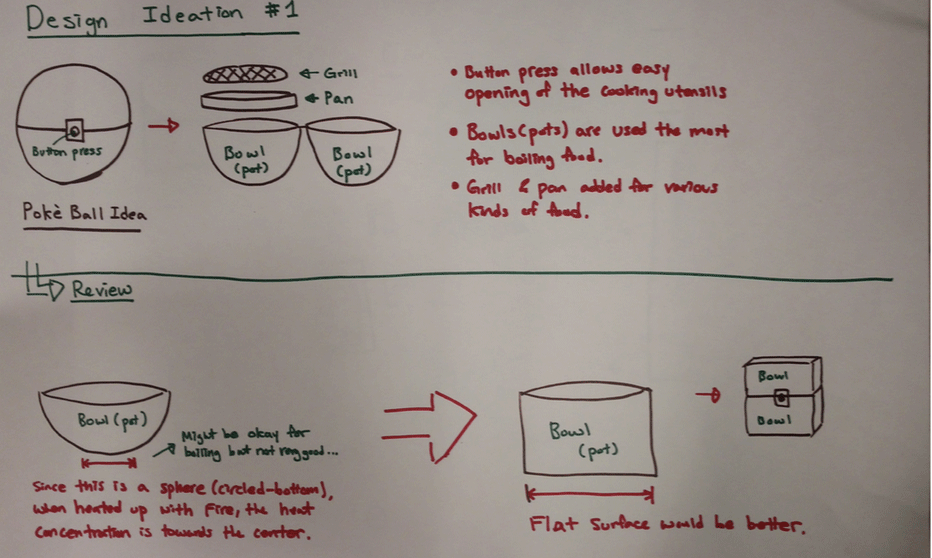 Design Ideation #1
Button press
Pokè Ball Idea
Grill
Pan
Bowl
(pot)
Bowl
(pot)
• Button press allows easy
opening of the cooking utensils
• Bowls(pots) are used the most
for boiling food.
• Grill & pan added for various
kinds of food.
Review
Bowl (pot)
Might be okay for
boiling but not very good...
Since this is a sphere (circled-bottom),
when heated up with fire, the heat
concentration is towards the center.
Bowl
(pot)
Flat surface would be better.
Bowl
Bowl